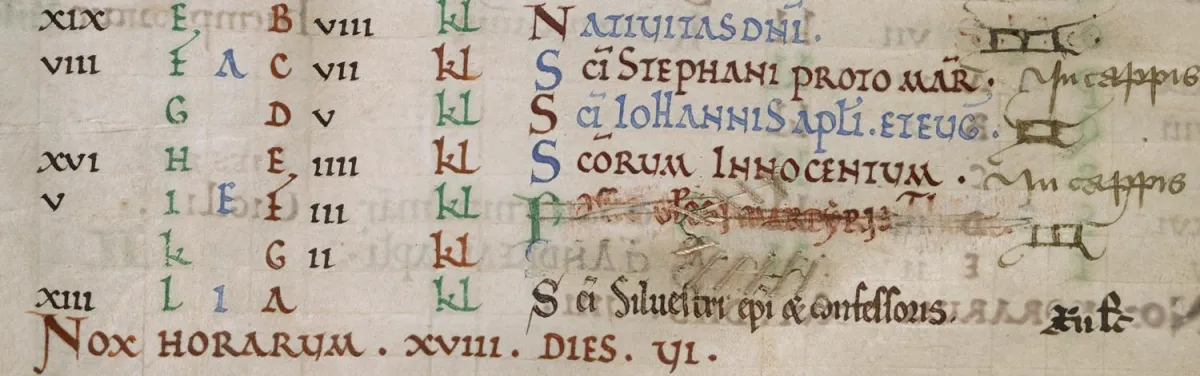 XIX E B VIII kl NATIVITAS DNI.
VIII F A C VII kl S CI STEPHANI PROTO MAR. In cappis
G D V kl S CI IOHANNIS APLI. ET EUG.
XVI H E IIII kl S CORUM INNOCENTUM. In cappis
V I E F III kl MARTYRIS
K G II kl
XIII L I A kl S CI Siluestri epi & confessoris.
NOX HORARUM. XVIII. DIES. VI.